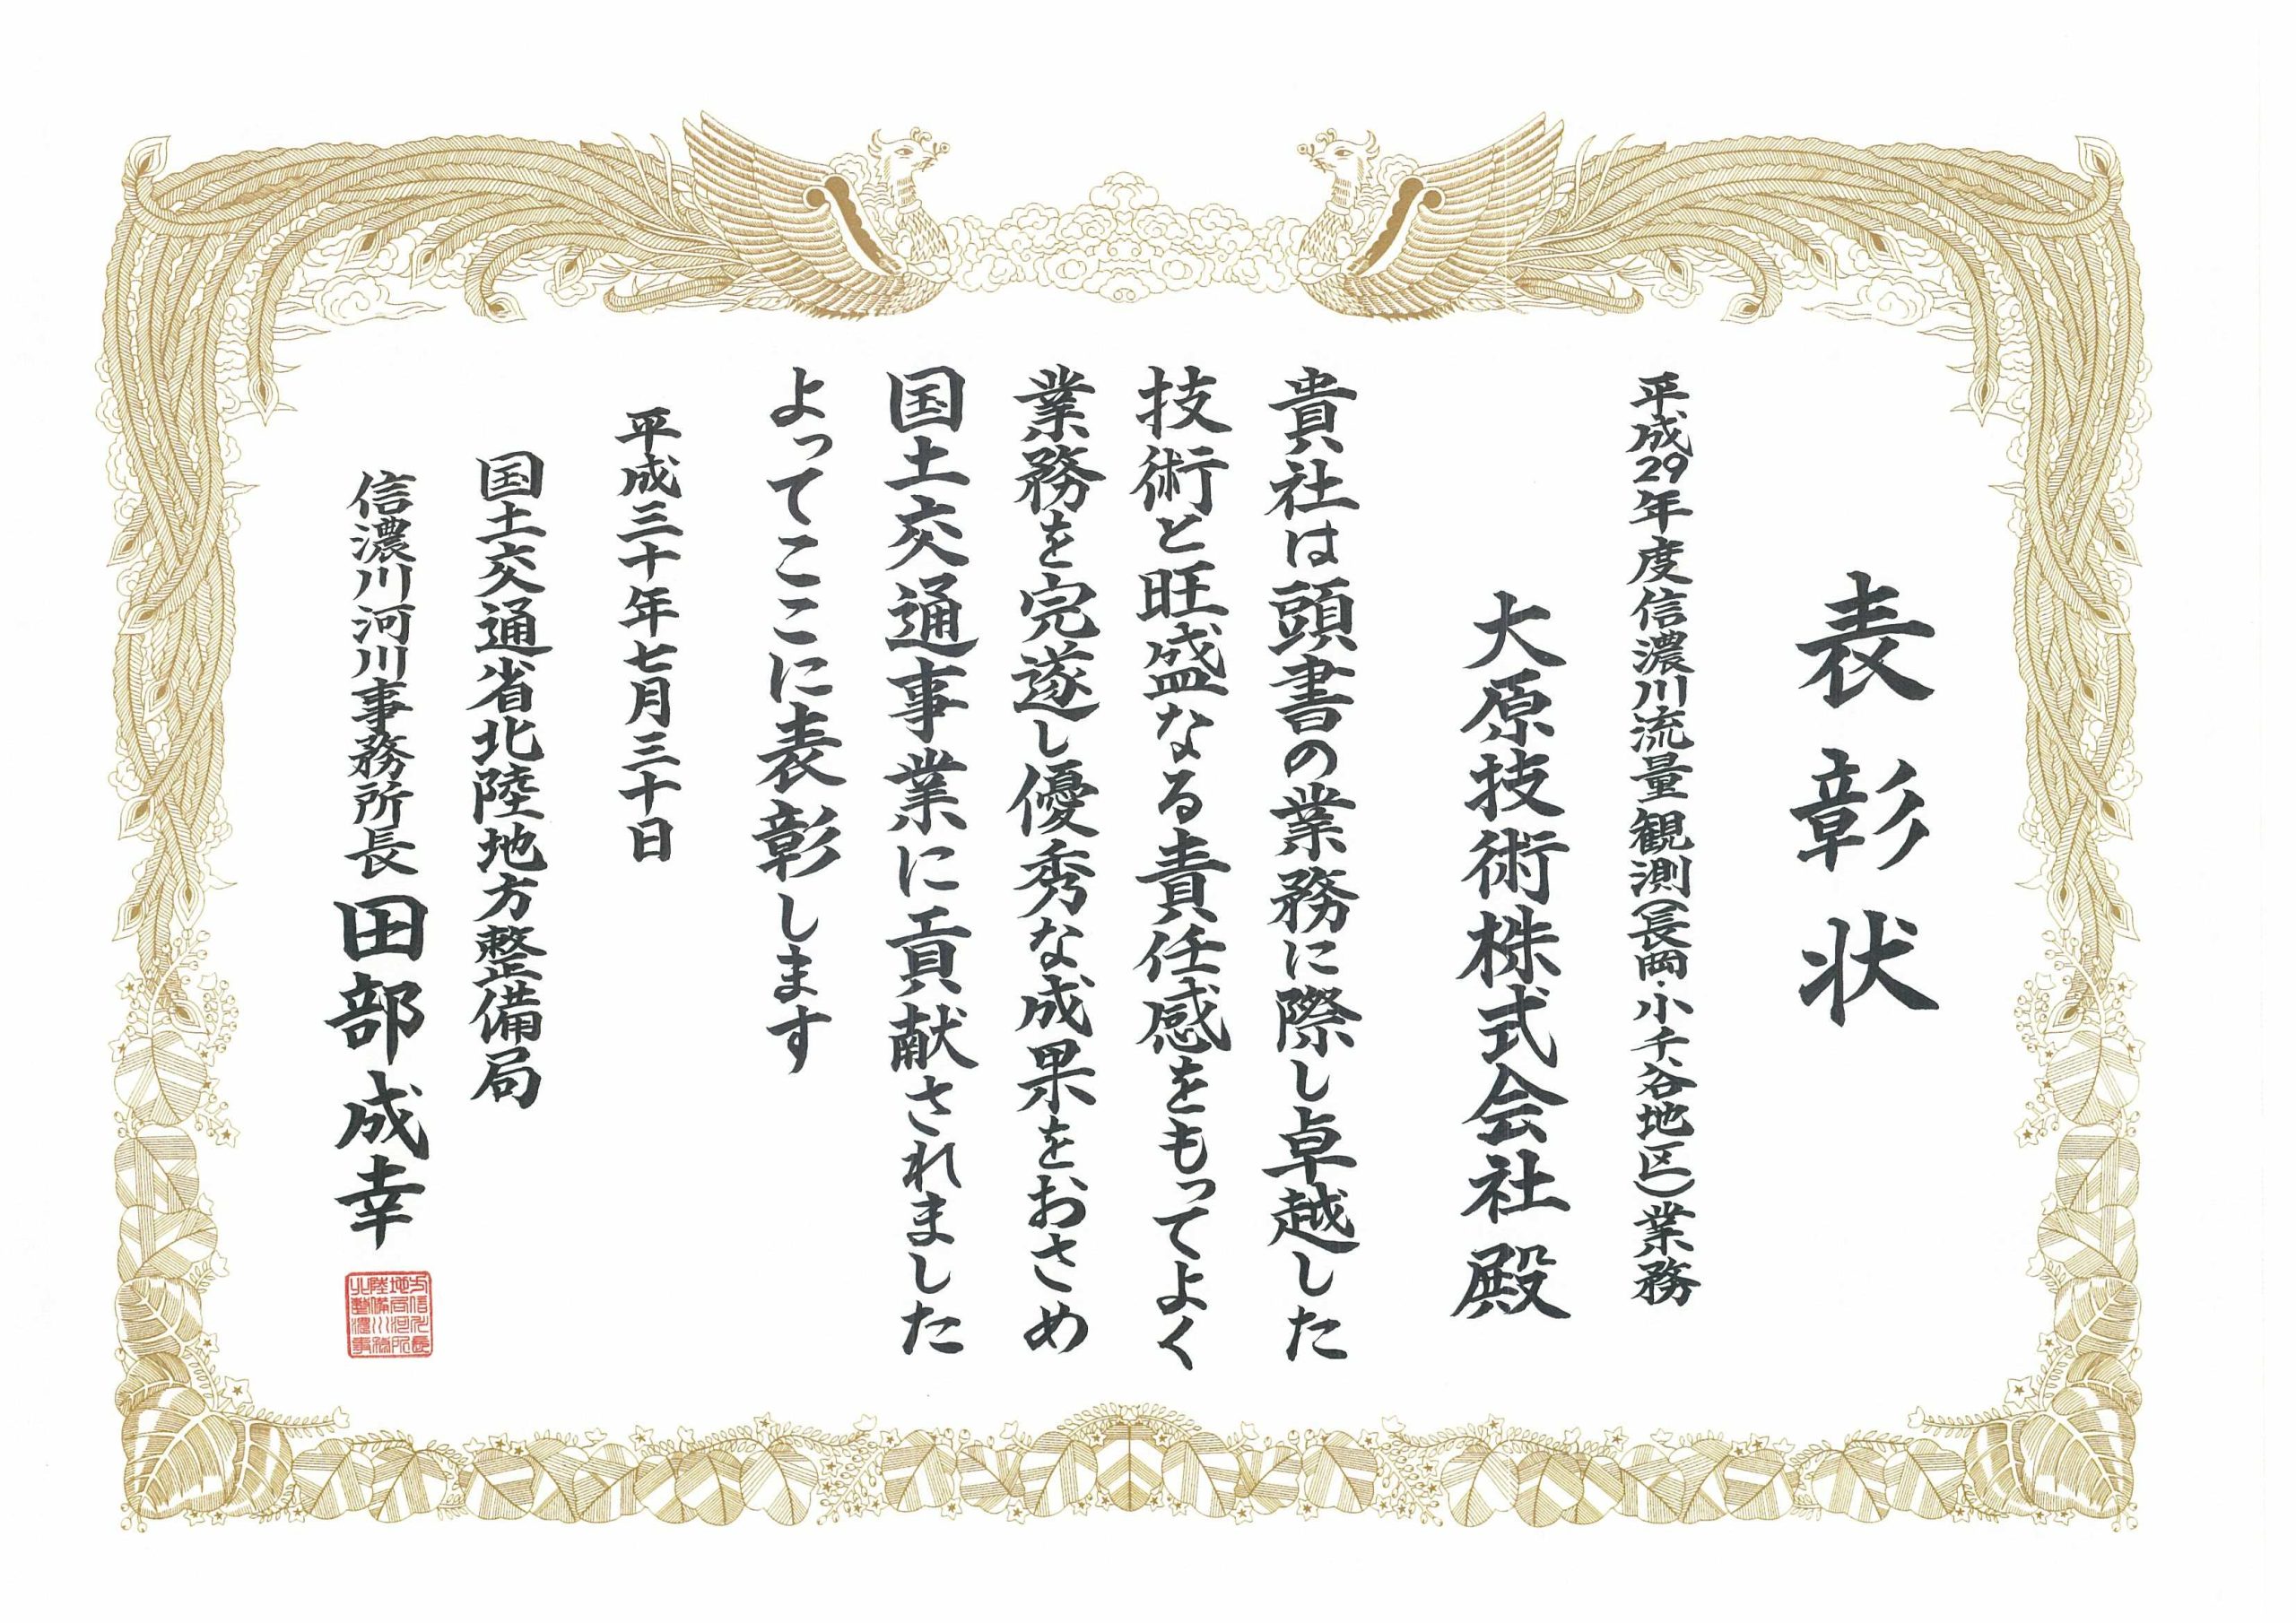 表彰状
平成29年度信濃川流量観測(長岡・小千谷地区)業務
大原技術株式会社 殿
貴社は頭書の業務に際し卓越した
技術と旺盛なる責任感をもってよく
業務を完遂し優秀な成果をおさめ
国土交通事業に貢献されました
よってここに表彰します
平成三十年七月三十日
国土交通省北陸地方整備局
信濃川河川事務所長 田部成幸